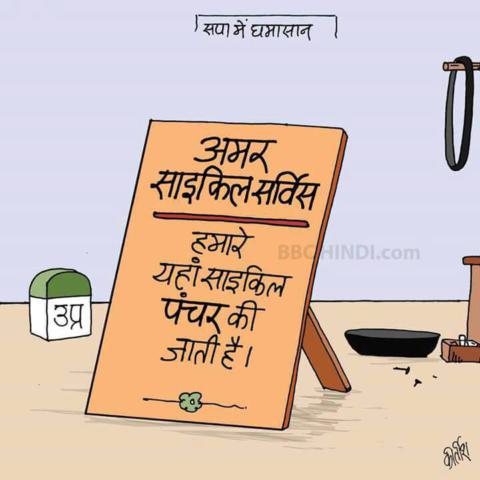 सपा में घमासान
अमर
साइकिल सर्विस
हमारे
यहां साइकिल
पंचर की
जाती है।
BBCHINDI.com
उप्र
कीर्तीश